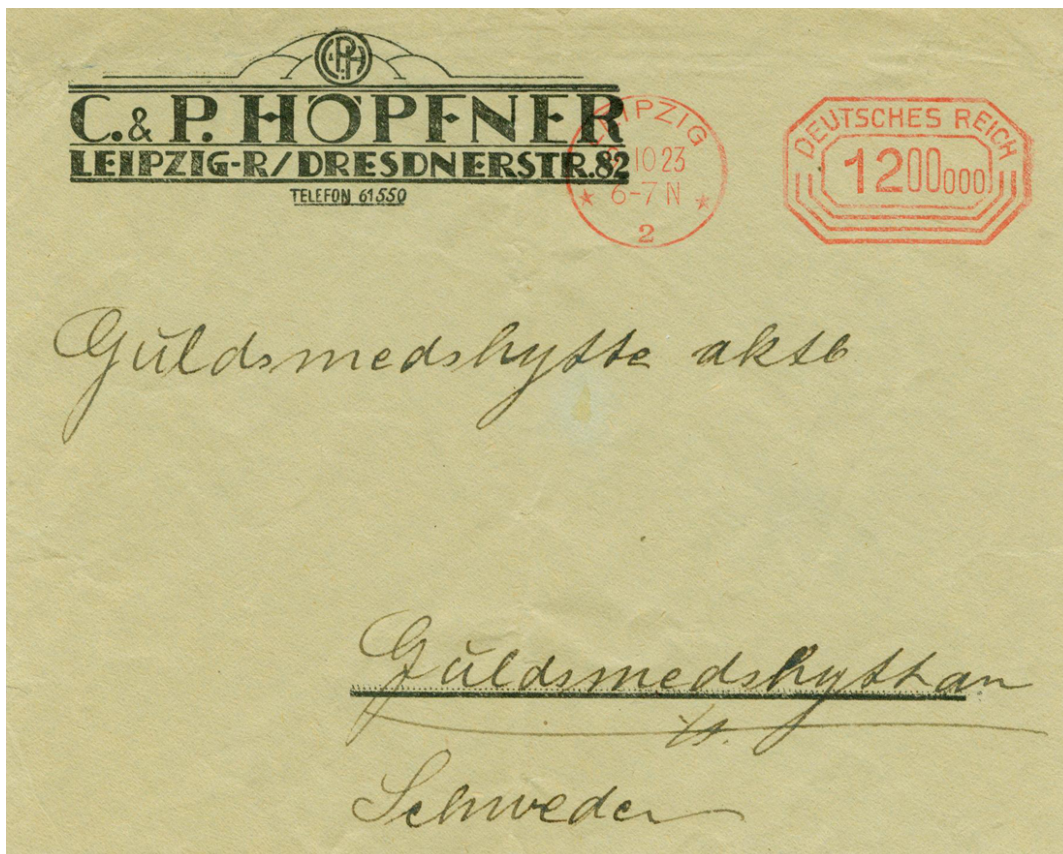 CPH
C. & P. HÖPFNER
LEIPZIG-R/DRESDNERSTR. 82
TELEFON 61550
LEIPZIG
10 23
★ 6-7 N ★
2
DEUTSCHES REICH
1200000
Guldsmedshytte aktb
Guldsmedshyttan
Schweden